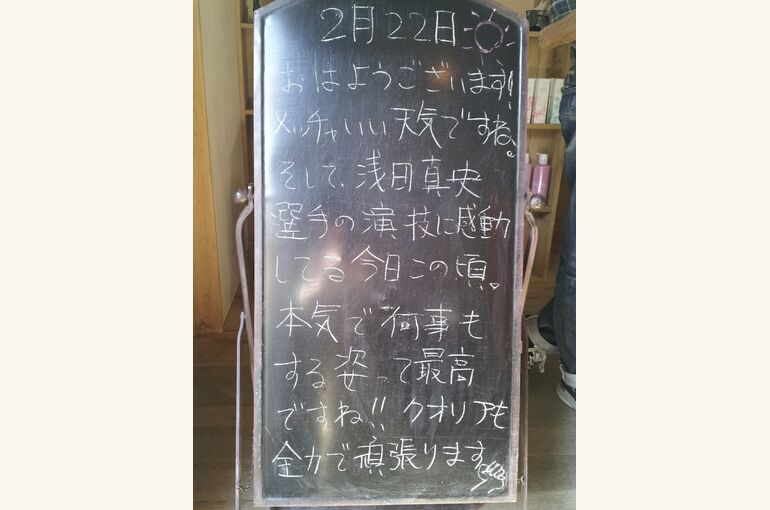 2月22日
おはようございます!
メッチャいい天気ですね。
そして、浅田真央
選手の演技に感動
してる今日この頃。
本気で何事も
する姿って最高
ですね!! クオリアも
全力で頑張ります